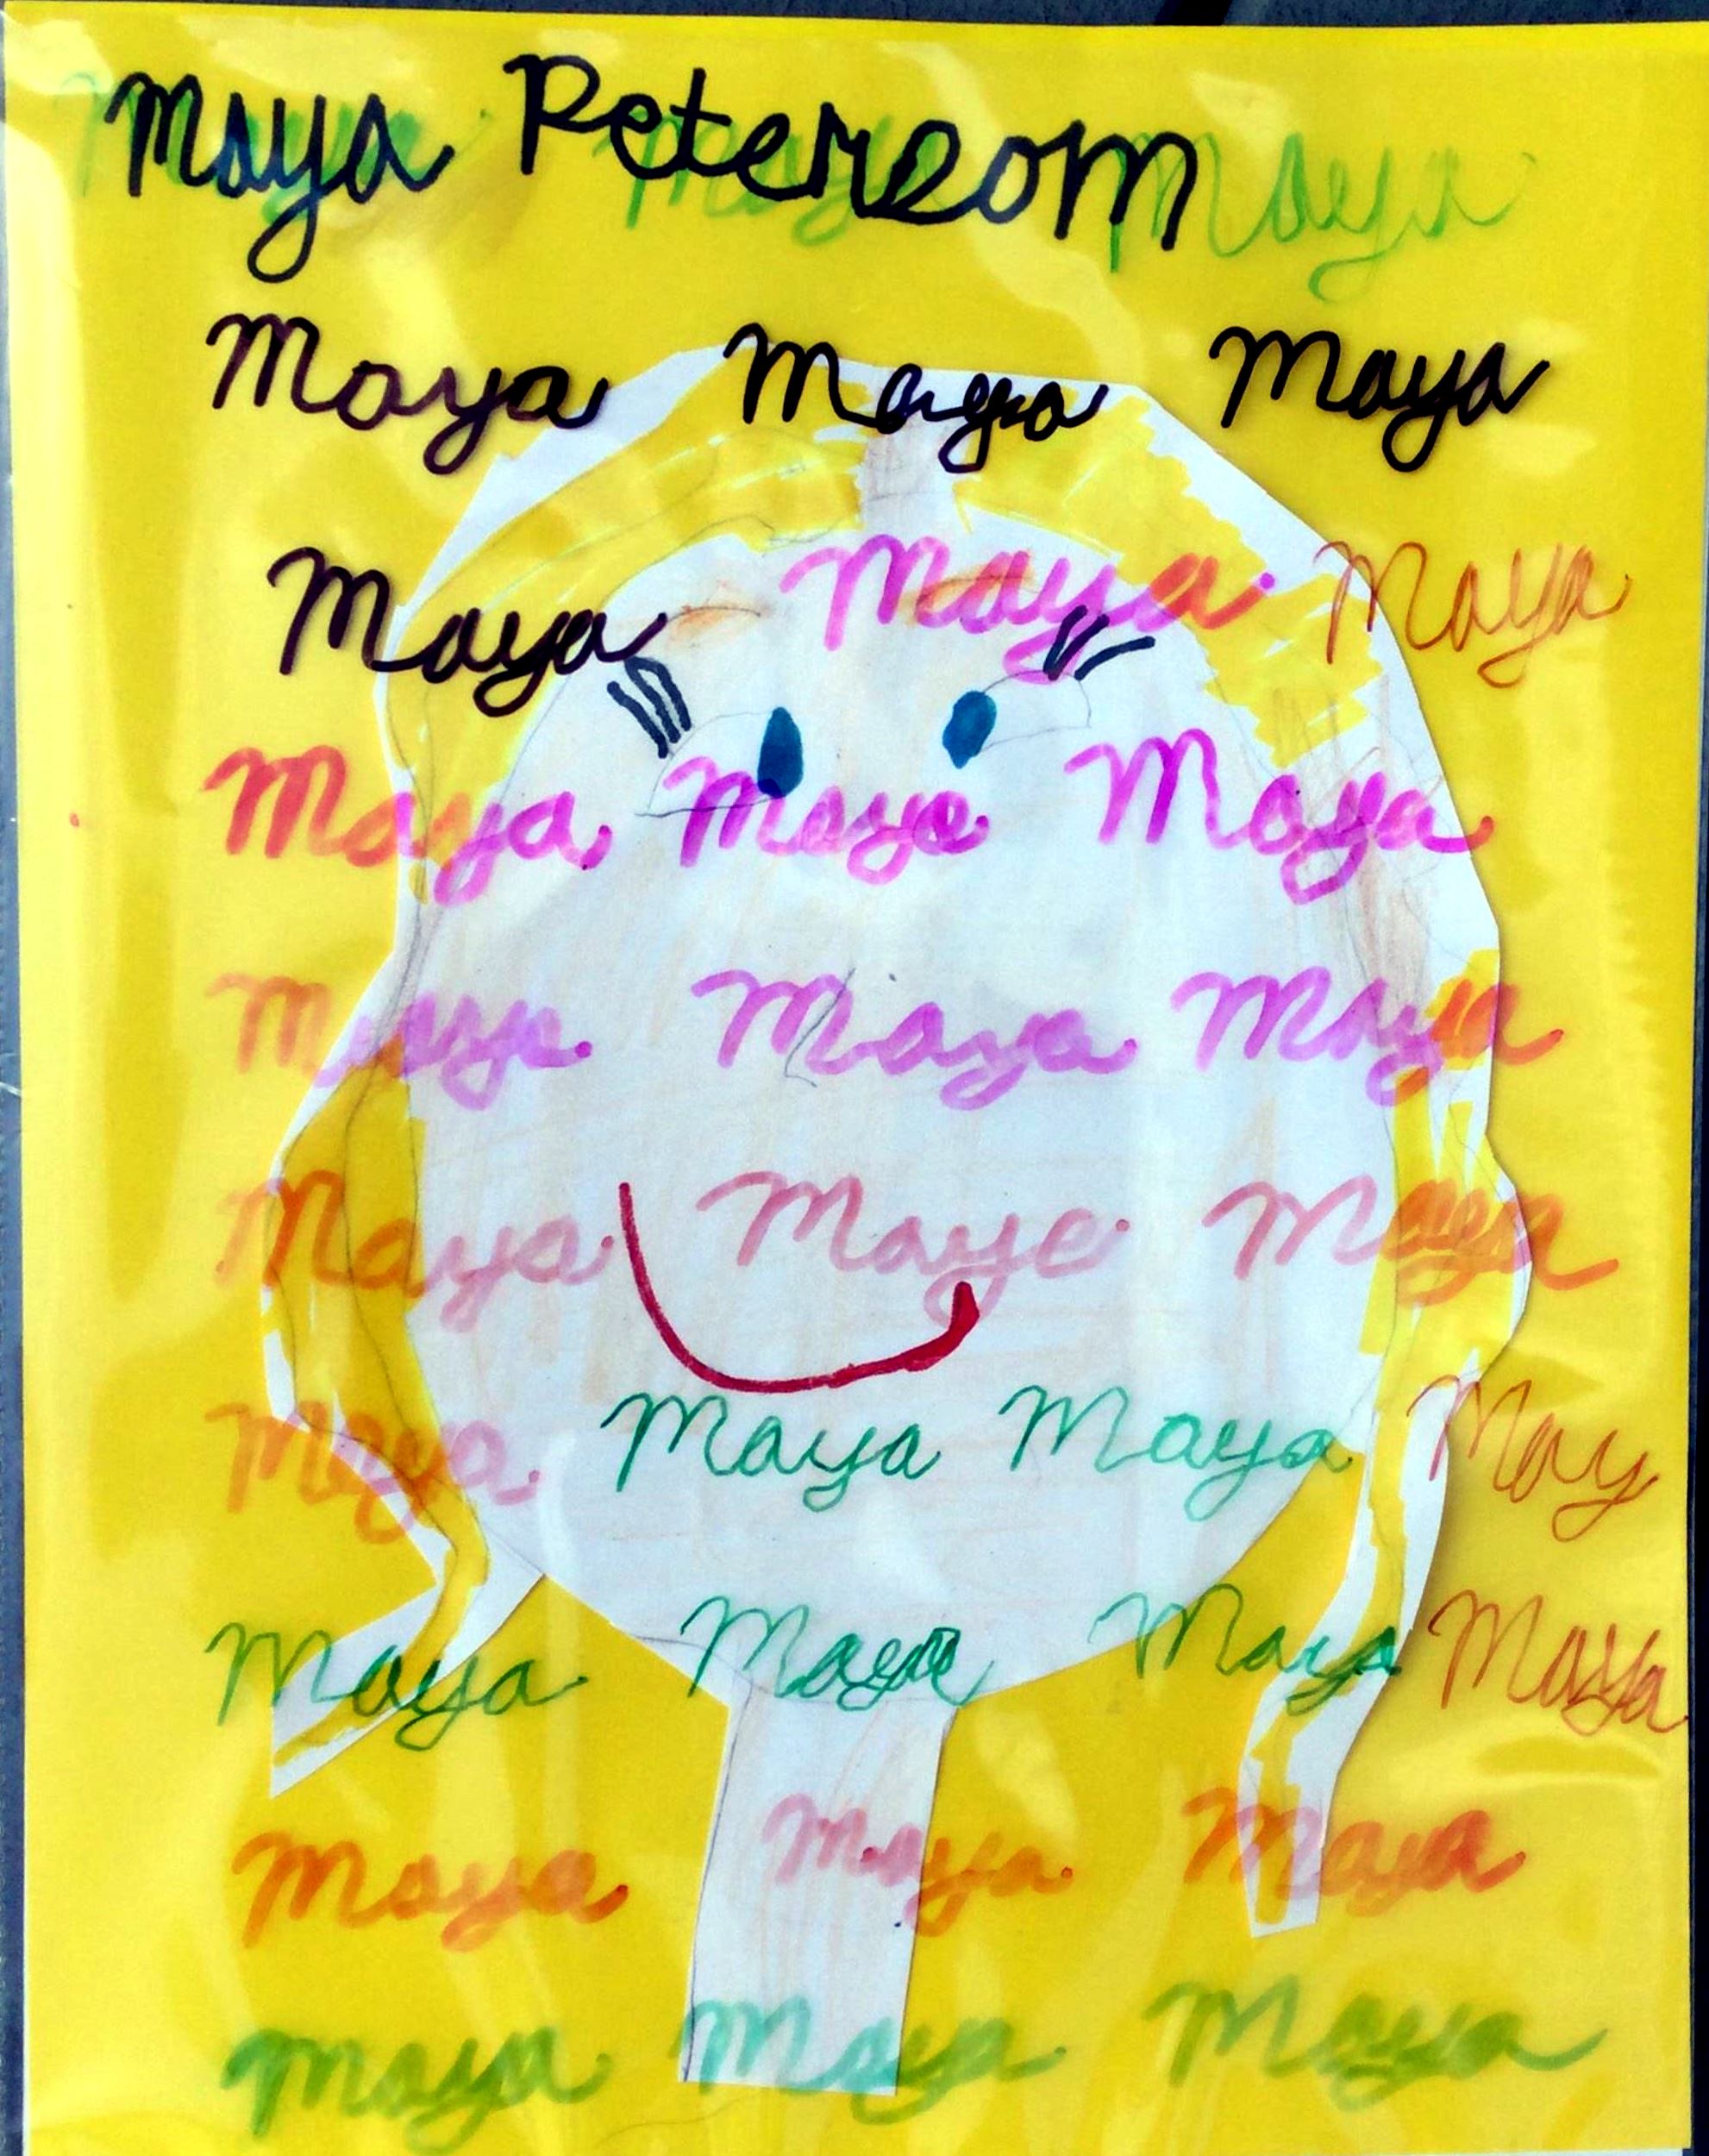 Maya Peterson
Maya Maya Maya
Maya Maya Maya
Maya Maya Maya
Maya Maya Maya
Maya Maya Maya
Maya Maya Maya May
Maya Maya Maya Maya
Maya Maya Maya
Maya Maya Maya